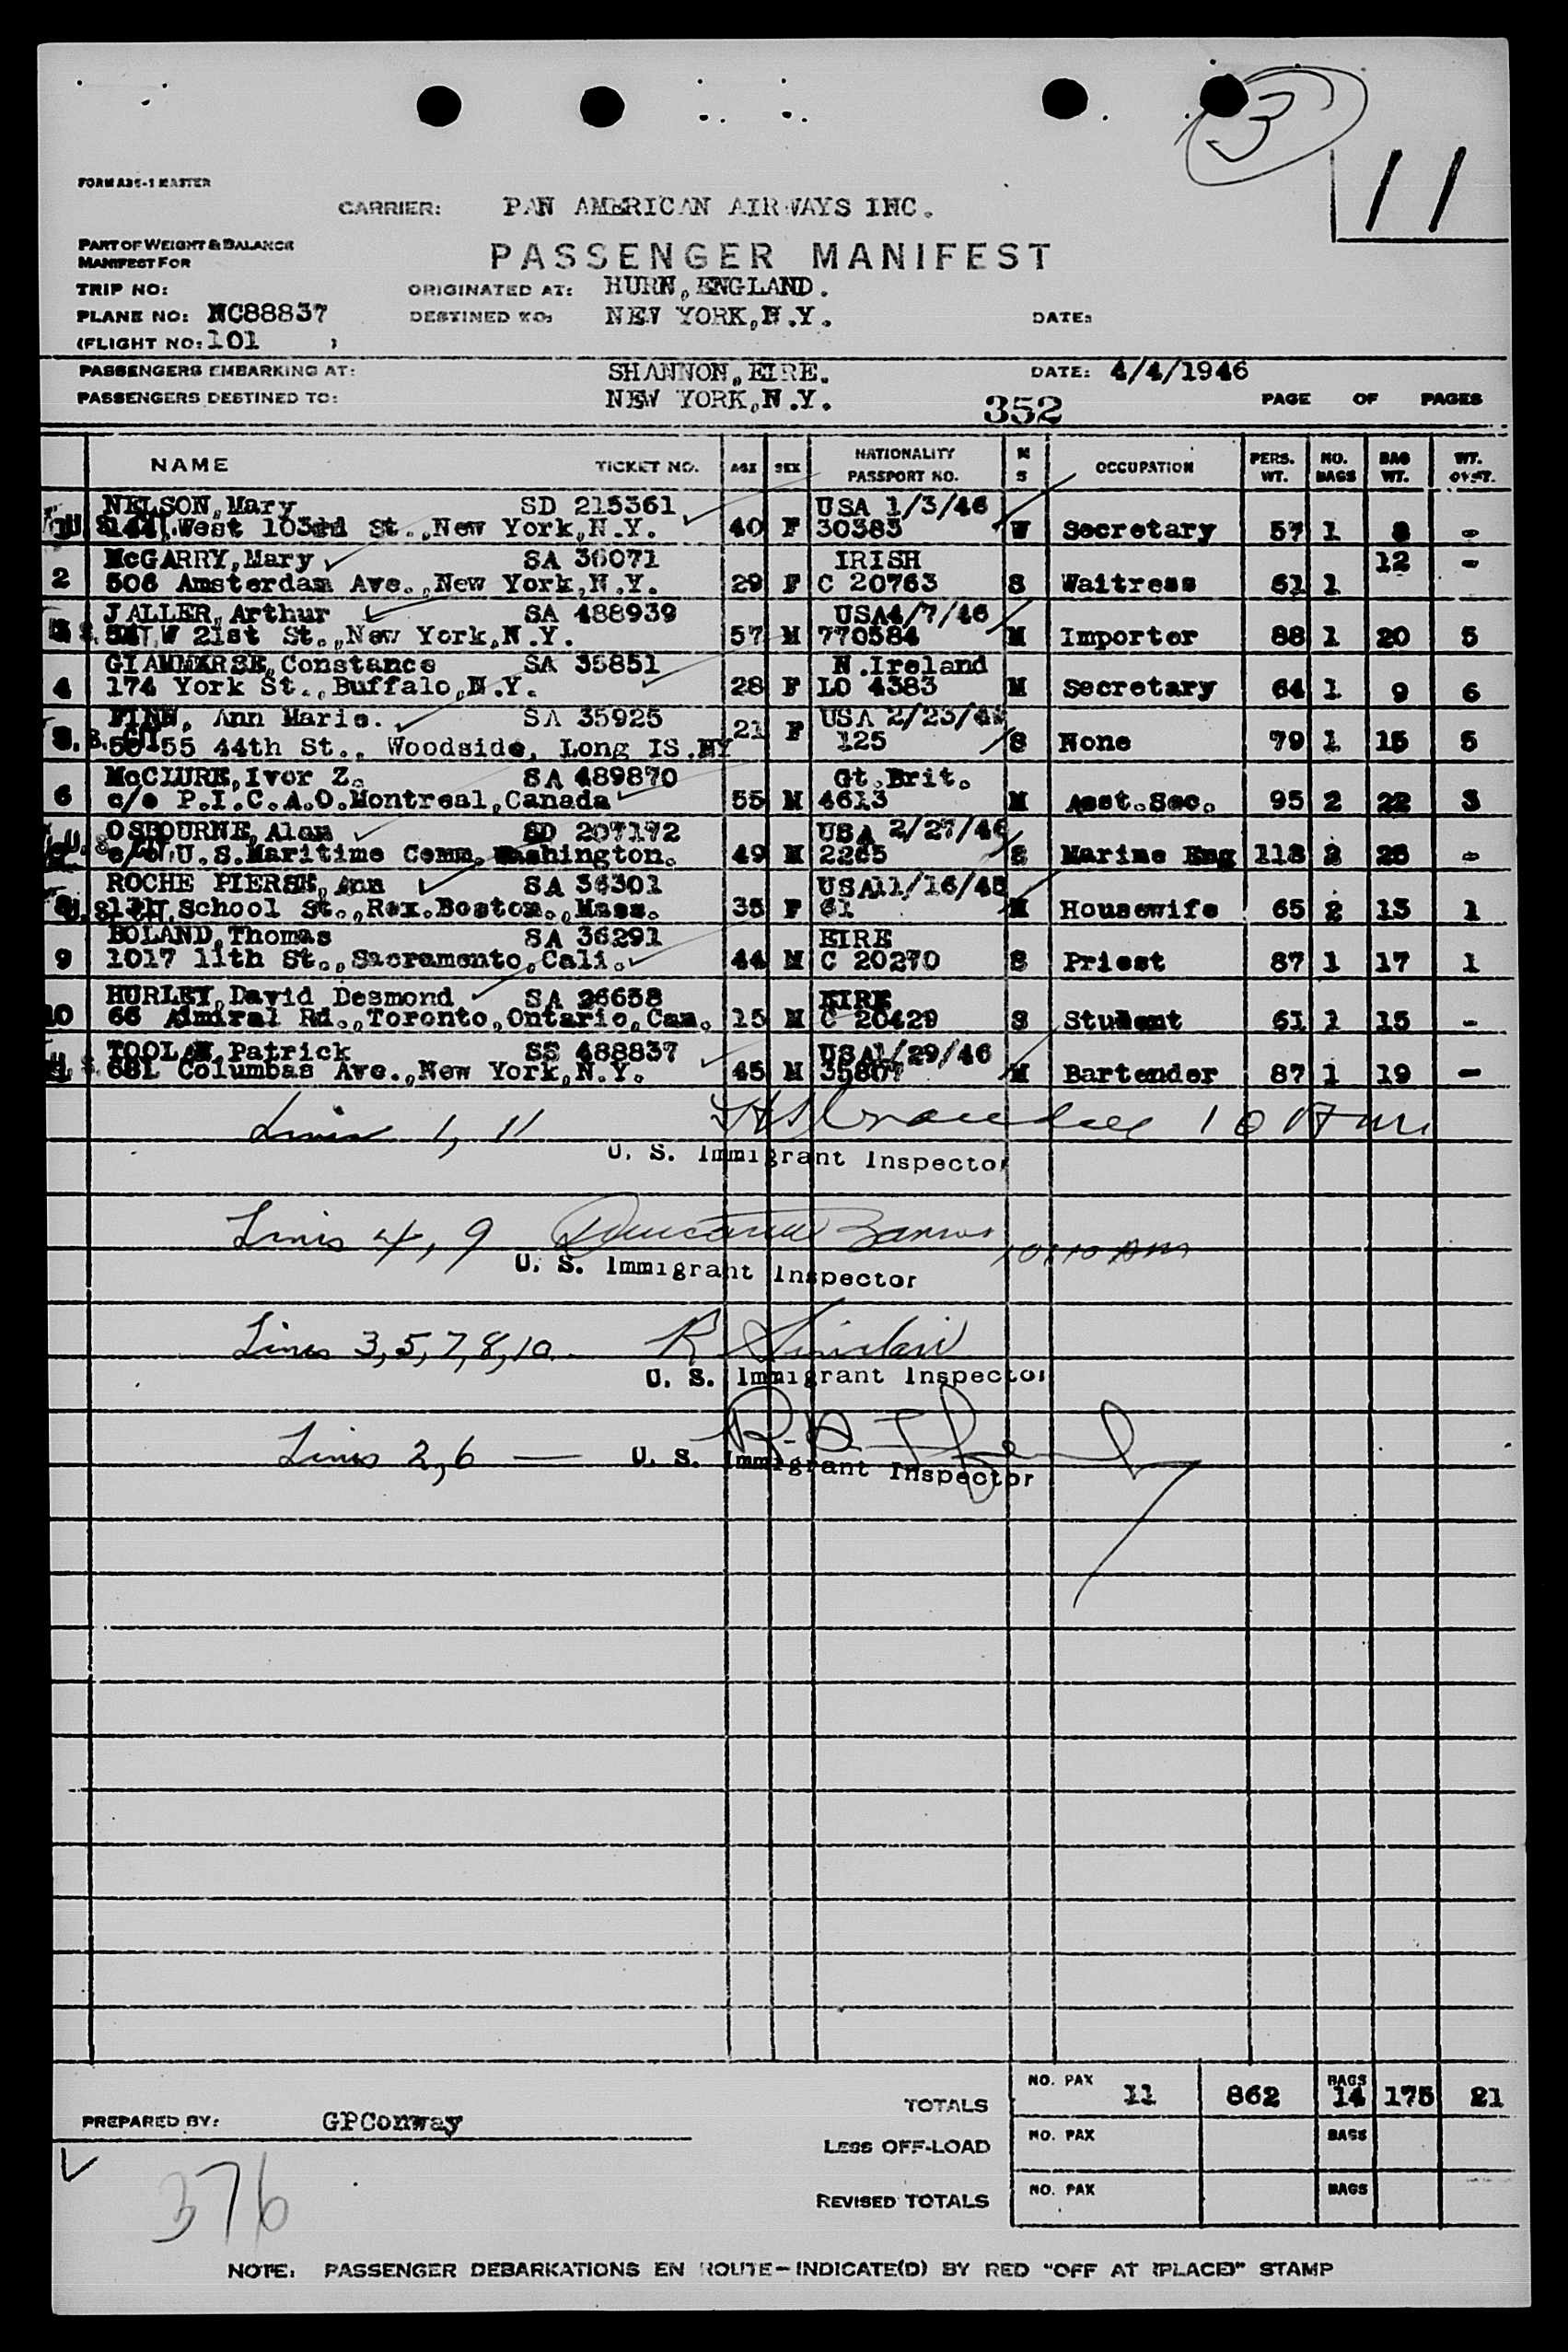 3
11
FORM A35-1 MASTER
CARRIER: PAN AMERICAN AIRWAYS INC.
PART OF WEIGHT & BALANCE
MANIFEST FOR
PASSENGER MANIFEST
TRIP NO: ORIGINATED AT: HURN, ENGLAND.
PLANE NO: NC88837 DESTINED TO: NEW YORK, N.Y. DATE:
(FLIGHT NO: 101 )
PASSENGERS EMBARKING AT: SHANNON, EIRE. DATE: 4/4/1946
PASSENGERS DESTINED TO: NEW YORK, N.Y. 352 PAGE OF PAGES
NAME TICKET NO. AGE SEX NATIONALITY PASSPORT NO. M S OCCUPATION PERS. WT. NO. BAGS BAG WT. WT. OVWT.
NELSON, Mary SD 215361 USA 1/3/46
West 103rd St., New York, N.Y. 40 F 30383 W Secretary 57 1 8 -
McGARRY, Mary SA 36071 IRISH 12 -
2 506 Amsterdam Ave., New York, N.Y. 29 F C 20763 S Waitress 61 1
JALLER, Arthur SA 488939 USA 4/7/46
W 21st St., New York, N.Y. 57 M 770584 M Importer 88 1 20 5
Constance SA 35851 N. Ireland
4 174 York St., Buffalo, N.Y. 28 F LO 4383 M Secretary 64 1 9 6
FINN, Ann Marie. SA 35925 USA 2/23/
55 44th St., Woodside, Long IS. NY 21 F 125 S None 79 1 15 5
McCLURE, Ivor Z. SA 489870 Gt. Brit.
6 c/o P.I.C.A.O. Montreal, Canada 55 M 4613 M Asst. Sec. 95 2 22 3
OSBOURNE, Alan SD 207172 USA 2/27/46
c/o U.S. Maritime Comm. Washington. 49 M 2265 S Marine Eng 118 2 25 -
ROCHE PIERSE, Ann SA 34301 USA 11/16/45
School St., Rox. Boston., Mass. 35 F 61 M Housewife 65 2 13 1
BOLAND, Thomas SA 36291 EIRE
9 1017 11th St., Sacramento, Cali. 44 M C 20270 S Priest 87 1 17 1
HURLEY, David Desmond SA 26658 EIRE
10 66 Admiral Rd., Toronto, Ontario, Can. 15 M C 20429 S Student 61 1 15 -
TOOLAN, Patrick SS 488837 USA 1/29/46
681 Columbas Ave., New York, N.Y. 45 M 35807 M Bartender 87 1 19 -
Lines 1, 11
U. S. Immigrant Inspector
Lines 4, 9 10:10 AM
U. S. Immigrant Inspector
Lines 3,5,7,8,10. R Sinclair
U. S. Immigrant Inspector
Lines 2,6 —
U. S. Immigrant Inspector
TOTALS NO. PAX 11 862 BAGS 14 175 21
PREPARED BY: GPConway
LESS OFF-LOAD NO. PAX BAGS
376
REVISED TOTALS NO. PAX BAGS
NOTE: PASSENGER DEBARKATIONS EN ROUTE-INDICATE(D) BY RED "OFF AT (PLACE)" STAMP